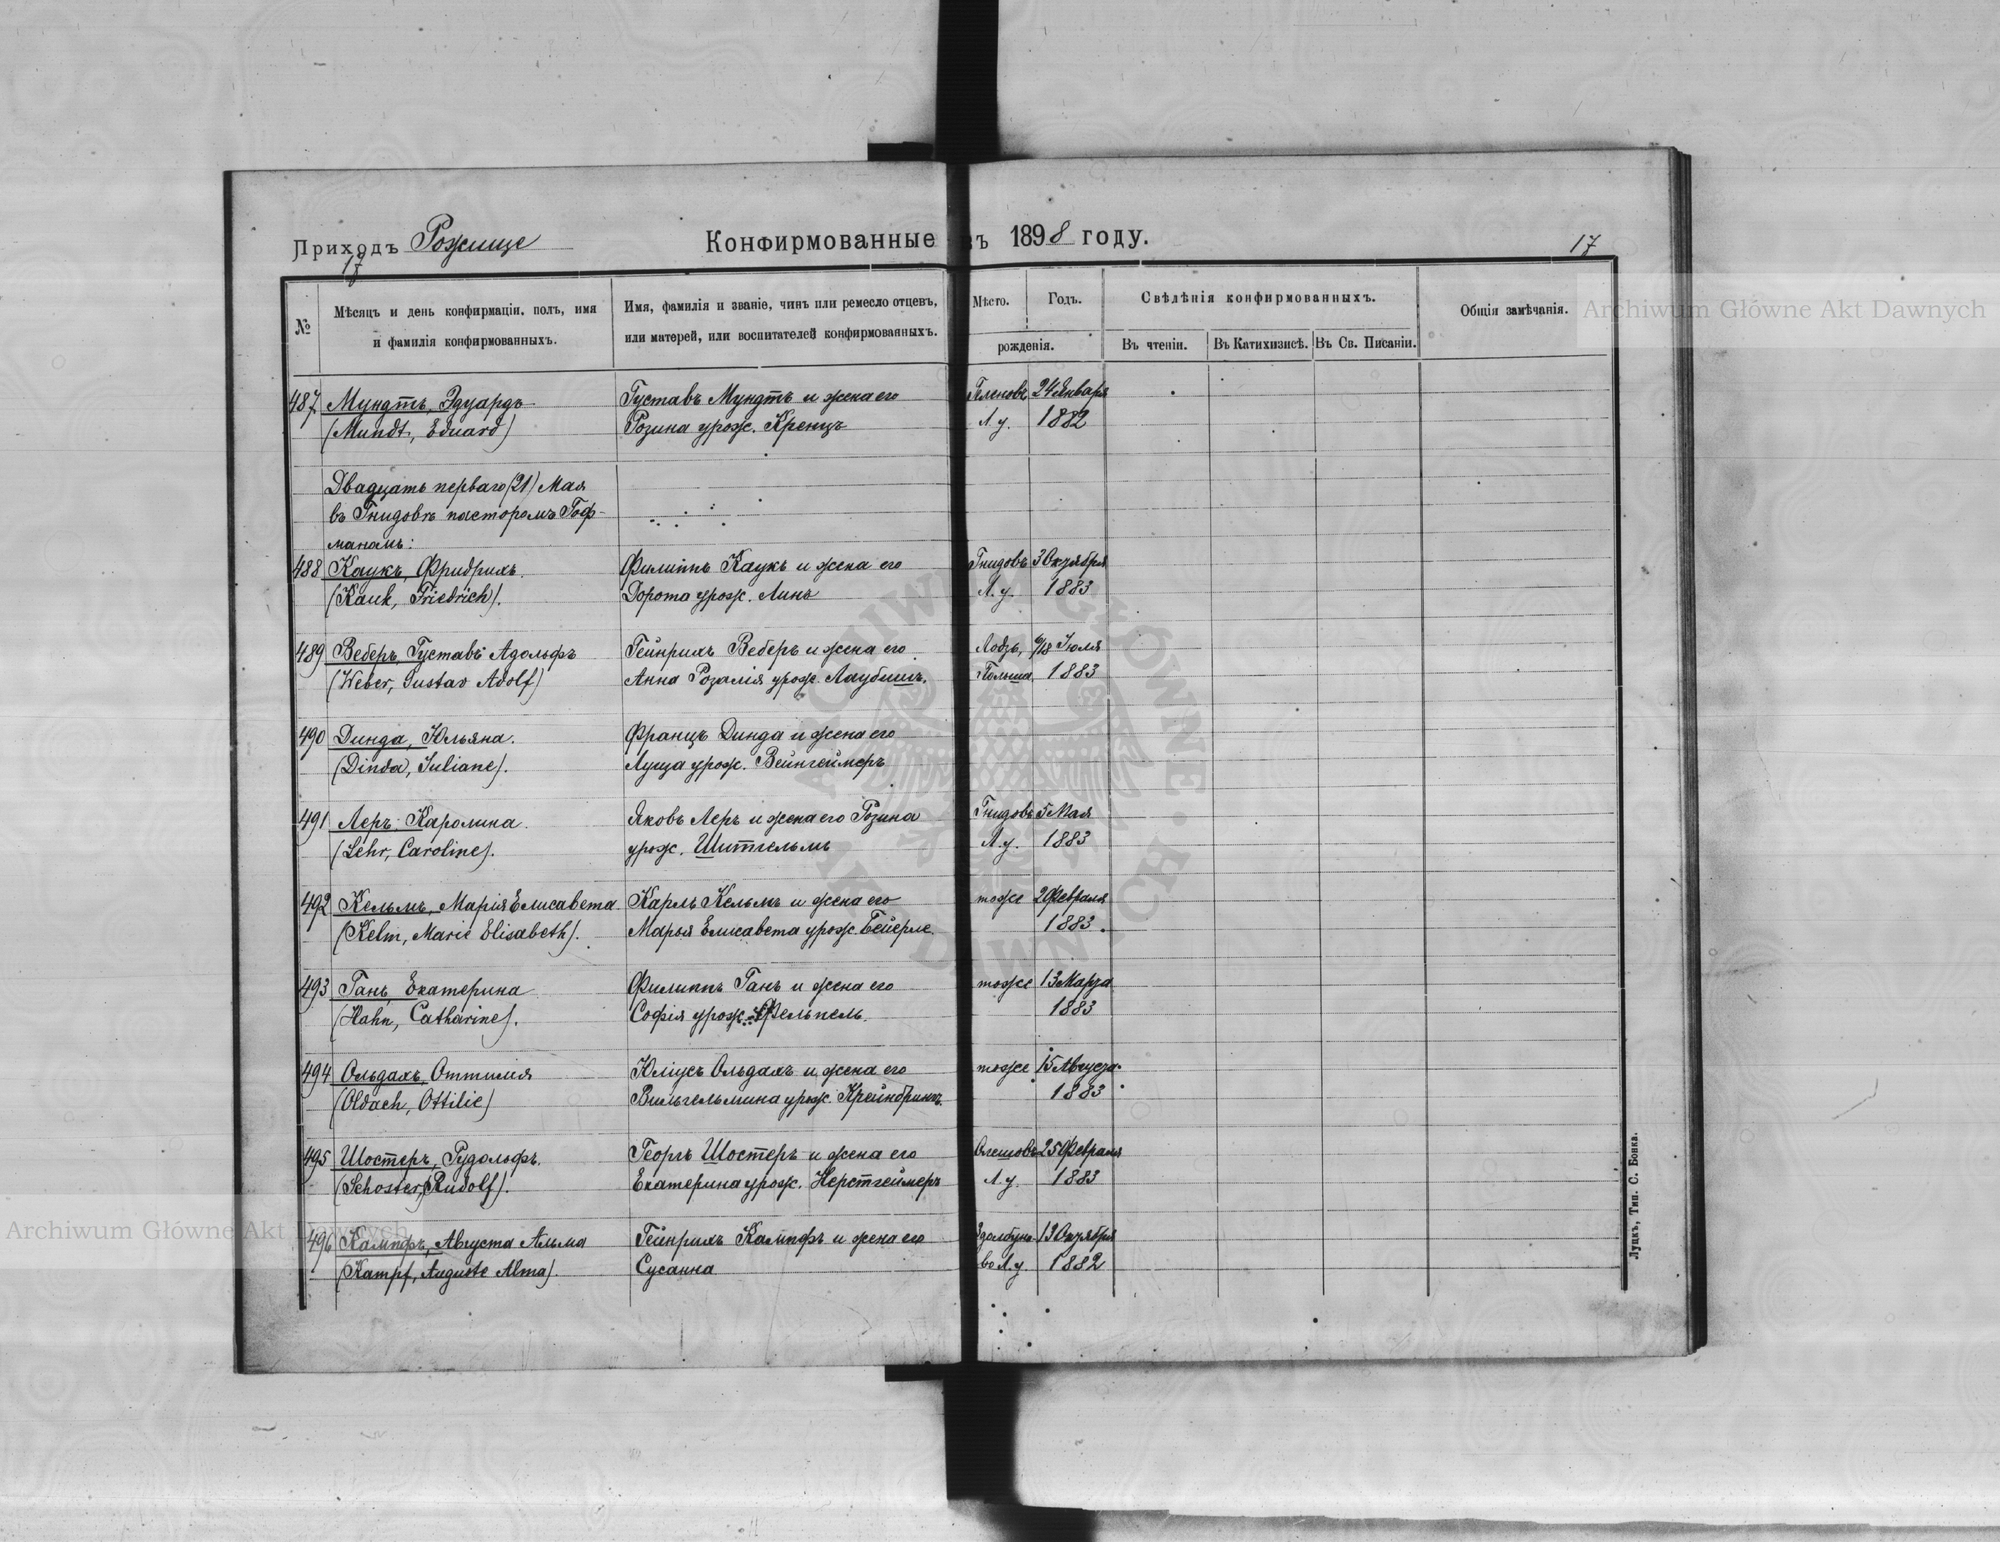 Приходъ Рожище
Конфирмованные въ 1898 году.
17
17
№
Мѣсяцъ и день конфирмаціи, полъ, имя
и фамилія конфирмованныхъ.
Имя, фамилія и званіе, чинъ или ремесло отцевъ,
или матерей, или воспитателей конфирмованныхъ.
Мѣсто.
Годъ.
рожденія.
Свѣдѣнія конфирмованныхъ.
Въ чтеніи.
Въ Катихизисѣ.
Въ Св. Писаніи.
Общія замѣчанія.
487 Мундтъ, Эдуардъ Густавъ Мундтъ и жена его 24 Января
(Mundt, Eduard) Розина урож. Кренцъ Л.у. 1882
Двадцать перваго (21) Мая
въ Гнидовѣ пасторомъ Гоф-
маномъ:
488 Каукъ, Фридрихъ. Филиппъ Каукъ и жена его Гнидовъ 3 Октября
(Kauk, Friedrich). Дорота урож. Линъ Л.у. 1883
489 Веберъ, Густавъ Адольфъ Гейнрихъ Веберъ и жена его Лодзь, 6/18 Іюля
(Weber, Gustav Adolf) Анна Розалія урож. Лаубишъ. Польша 1883
490 Динда, Юльяна. Францъ Динда и жена его
(Dinda, Juliane). Луиза урож. Вейнгеймеръ
491 Леръ, Каролина. Яковъ Леръ и жена его Розина Гнидовъ 5 Мая
(Lehr, Caroline). урож. Шитгельмъ Л.у. 1883
492 Кельмъ, Марія Елисавета Карлъ Кельмъ и жена его тоже 2 Февраля
(Kelm, Marie Elisabeth). Марья Елисавета урож. Бейерле 1883.
493 Ганъ, Екатерина Филиппъ Ганъ и жена его тоже 13 Марта
(Hahn, Catharine). Софія урож. Фельпель. 1883
494 Ольдахъ, Оттилія Юліусъ Ольдахъ и жена его тоже 15 Августа
(Oldach, Ottilie) Вильгельмина урож. Крейнбрингъ. 1883
495 Шостеръ, Рудольфъ. Георгъ Шостеръ и жена его 25 Февраля
(Schoster, Rudolf). Екатерина урож. Нерстгеймеръ Л.у. 1883
496 Кампфъ, Августа Альма Гейнрихъ Кампфъ и жена его Здолбуно- 13 Октября
(Kampf, Auguste Alma). Сусанна во Л.у. 1882
Луцкъ, Тип. С. Бонка.
Archiwum Główne Akt Dawnych
Archiwum Główne Akt Dawnych
ARCHIWUM GŁÓWNE AKT DAWNYCH